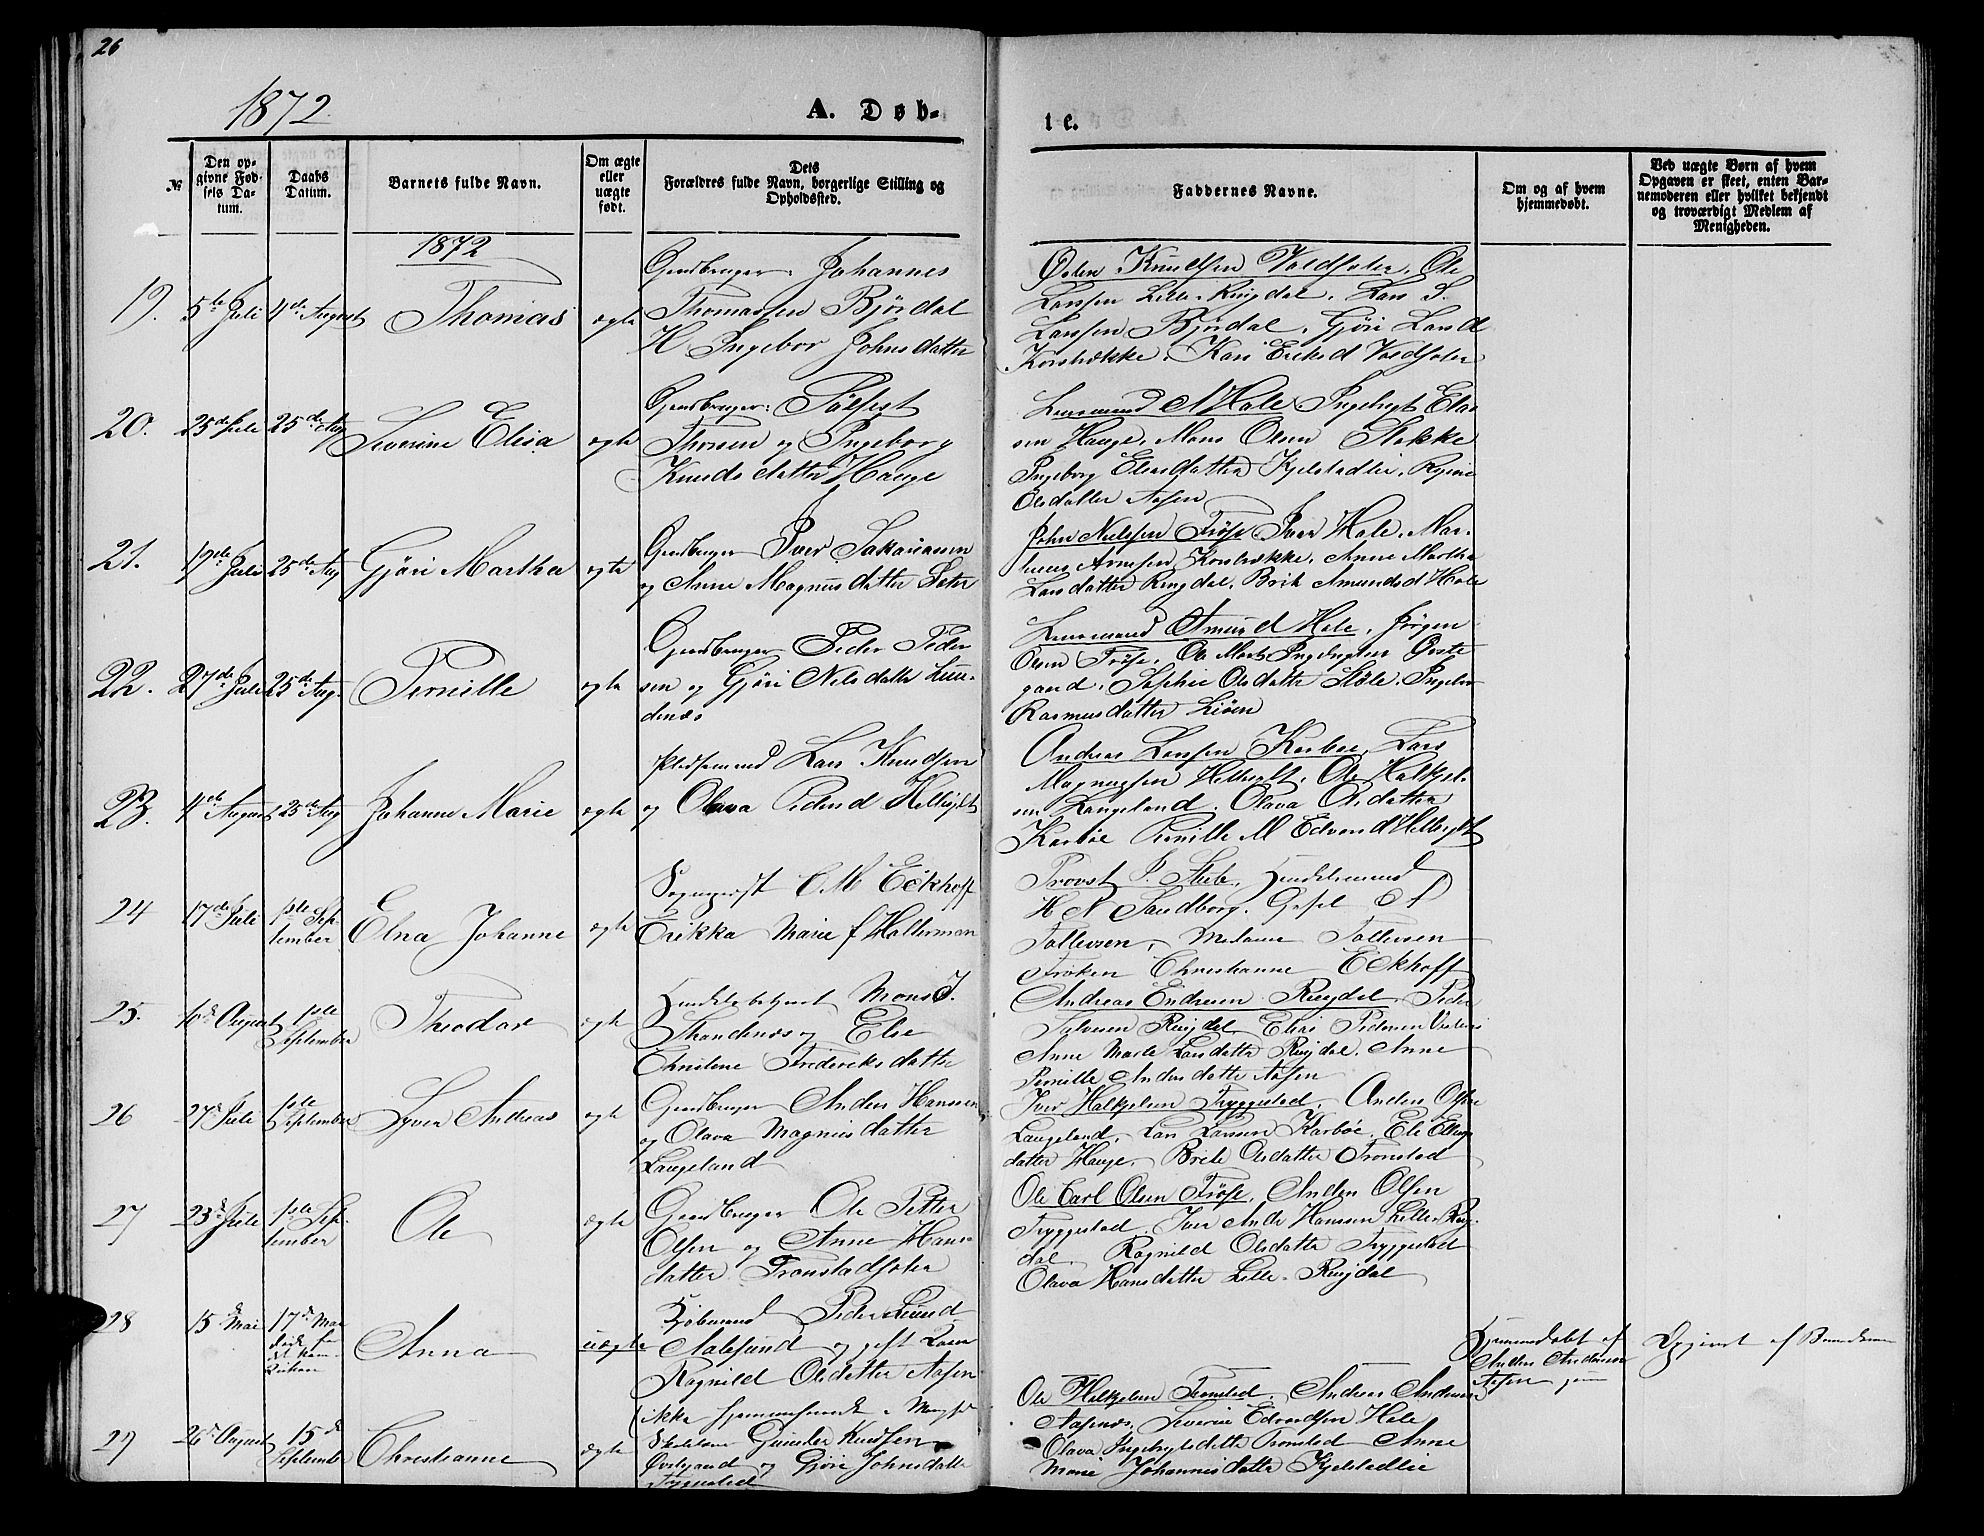 26
1872.
A. Døb-
te.
№
Den op-
givne Fød-
sels Da-
tum.
Daabs
Datum.
Barnets fulde Navn.
Om ægte
eller
uægte
født.
Dets
Forældres fulde Navn, borgerlige Stilling og
Opholdssted.
Faddernes Navne.
Om og af hvem
hjemmedøbt.
Ved uægte Børn af hvem
Opgaven er skeet, enten Bar-
nemoderen eller hvilket bekjendt
og troværdigt Medlem af
Menigheden.
1872
19. 5te Juli 4de August Thomas ægte
Gardbruger Johannes
Thomassen Bjørdal
H Ingebor Johnsdatter
Østen Knudsen Voldsæter, Ole
Larssen Lille-Ringdal, Lars S.
Larssen Bjørdal, Gjøri Lars d
Korsbrække, Kari Eriks d Voldsæter
20. 25de Juli 25de Aug Severine Elisa ægte
Gardbruger: Sølfest
Thorsen og Ingeborg
Knudsdatter Hauge
Lensmand A Hole, Ingebrigt Elias
sen Hauge, Mons Olsen Stokke
Ingeborg Eliasdatter Kjelstadlie,
Olsdatter Aasen
21. 19de Juli 25de Aug Gjøri Martha ægte
Gardbruger Iver Sakariassen
og Anne Magnusdatter Sæter
John Nielsen Frøse, Iver Hole, Mar-
Arnesen Korsbrække, Anne Martha
Larsdatter Ringdal, Brit Amunds d Hole
22. 27de Juli 25de Aug. Pernille ægte
Gardbruger Peder Peder
sen og Gjøri Nilsdatter Lun-
denæs
Lensmand Amund Hole, Jørgen
Olsen Frøse, Ole Mart. Ingebrigtsen Øvste
gaard, Sophie Olsdatter Støle, Ingebor
Rasmusdatter Liøen
23. 4de August 25de Aug Johanne Marie ægte
Pladsemand Lars Knudsen
og Olava Peders d
Andreas Larssen Karbøe, Lars
Magnussen
Langeland, Olava Olsdatter
Karbøe Pernille M Edvards d
24 17de Juli 1ste Sep-
tember Elna Johanne ægte
Sogneprest C M Eckhoff
Erikka Marie f Halterman
Provst P. Stub, Handelsmand
H N Sandborg, Gesel A
Tollevsen, Madame Tollevsen
Frøken Christianne Eckhoff
25. 10de August 1ste
September Theodor ægte
Handelsbetjent Mons J.
Strandnæs og Else
Christene Frederiksdatter
Andreas Endresen Ringdal, Peder
Sylvesen Ringdal, Elias Pedersen
Anne Marte Larsdatter Ringdal, Anne
Pernille Andersdatter Aasen
26 27de Juli 1ste
September Syver Andreas ægte
Gardbruger Anders Hanssen
og Olava Magnusdatter
Langeland
Iver Halkjelsen Tryggestad, Anders Olsen
Langeland, Lars Larssen Karbøe, Eli
datter Hauge, Brite Olsdatter Tronstad
27 23de Juli 1ste Sep-
tember Ole ægte
Gardbruger Ole Petter
Olsen og Anne Hans
datter Tronstadsæter
Ole Carl Olsen Frøse, Anders Olsen
Tryggestad, Iver Andr Hanssen Lille-Ring-
dal, Ragnild Olsdatter Tryggestad
Olava Hansdatter Lille-Ringdal
28 15de Mai 17de Mai
Anna uægte
Kjøbmand Peder Lund
Aalesund og gift Kone
Ragnild Olsdatter Aasen
ikke hjemmehørende i Menighed
Hjemmedøbt af
Anders Andersen
Aasen
Opgivet af Barnem
29 26de August 15de
September Christianne ægte
Gunder Knudsen
Øvstgaard og Gjøri Johnsdatter
Tryggestad
Ole Halkjelsen Tronstad, Andreas Andersen
Aasenæs, Severin Edvardsen Hole
Olava Ingebrigtsdatter Tronstad Anne
Marie Johannisdatter Kjelstadlie